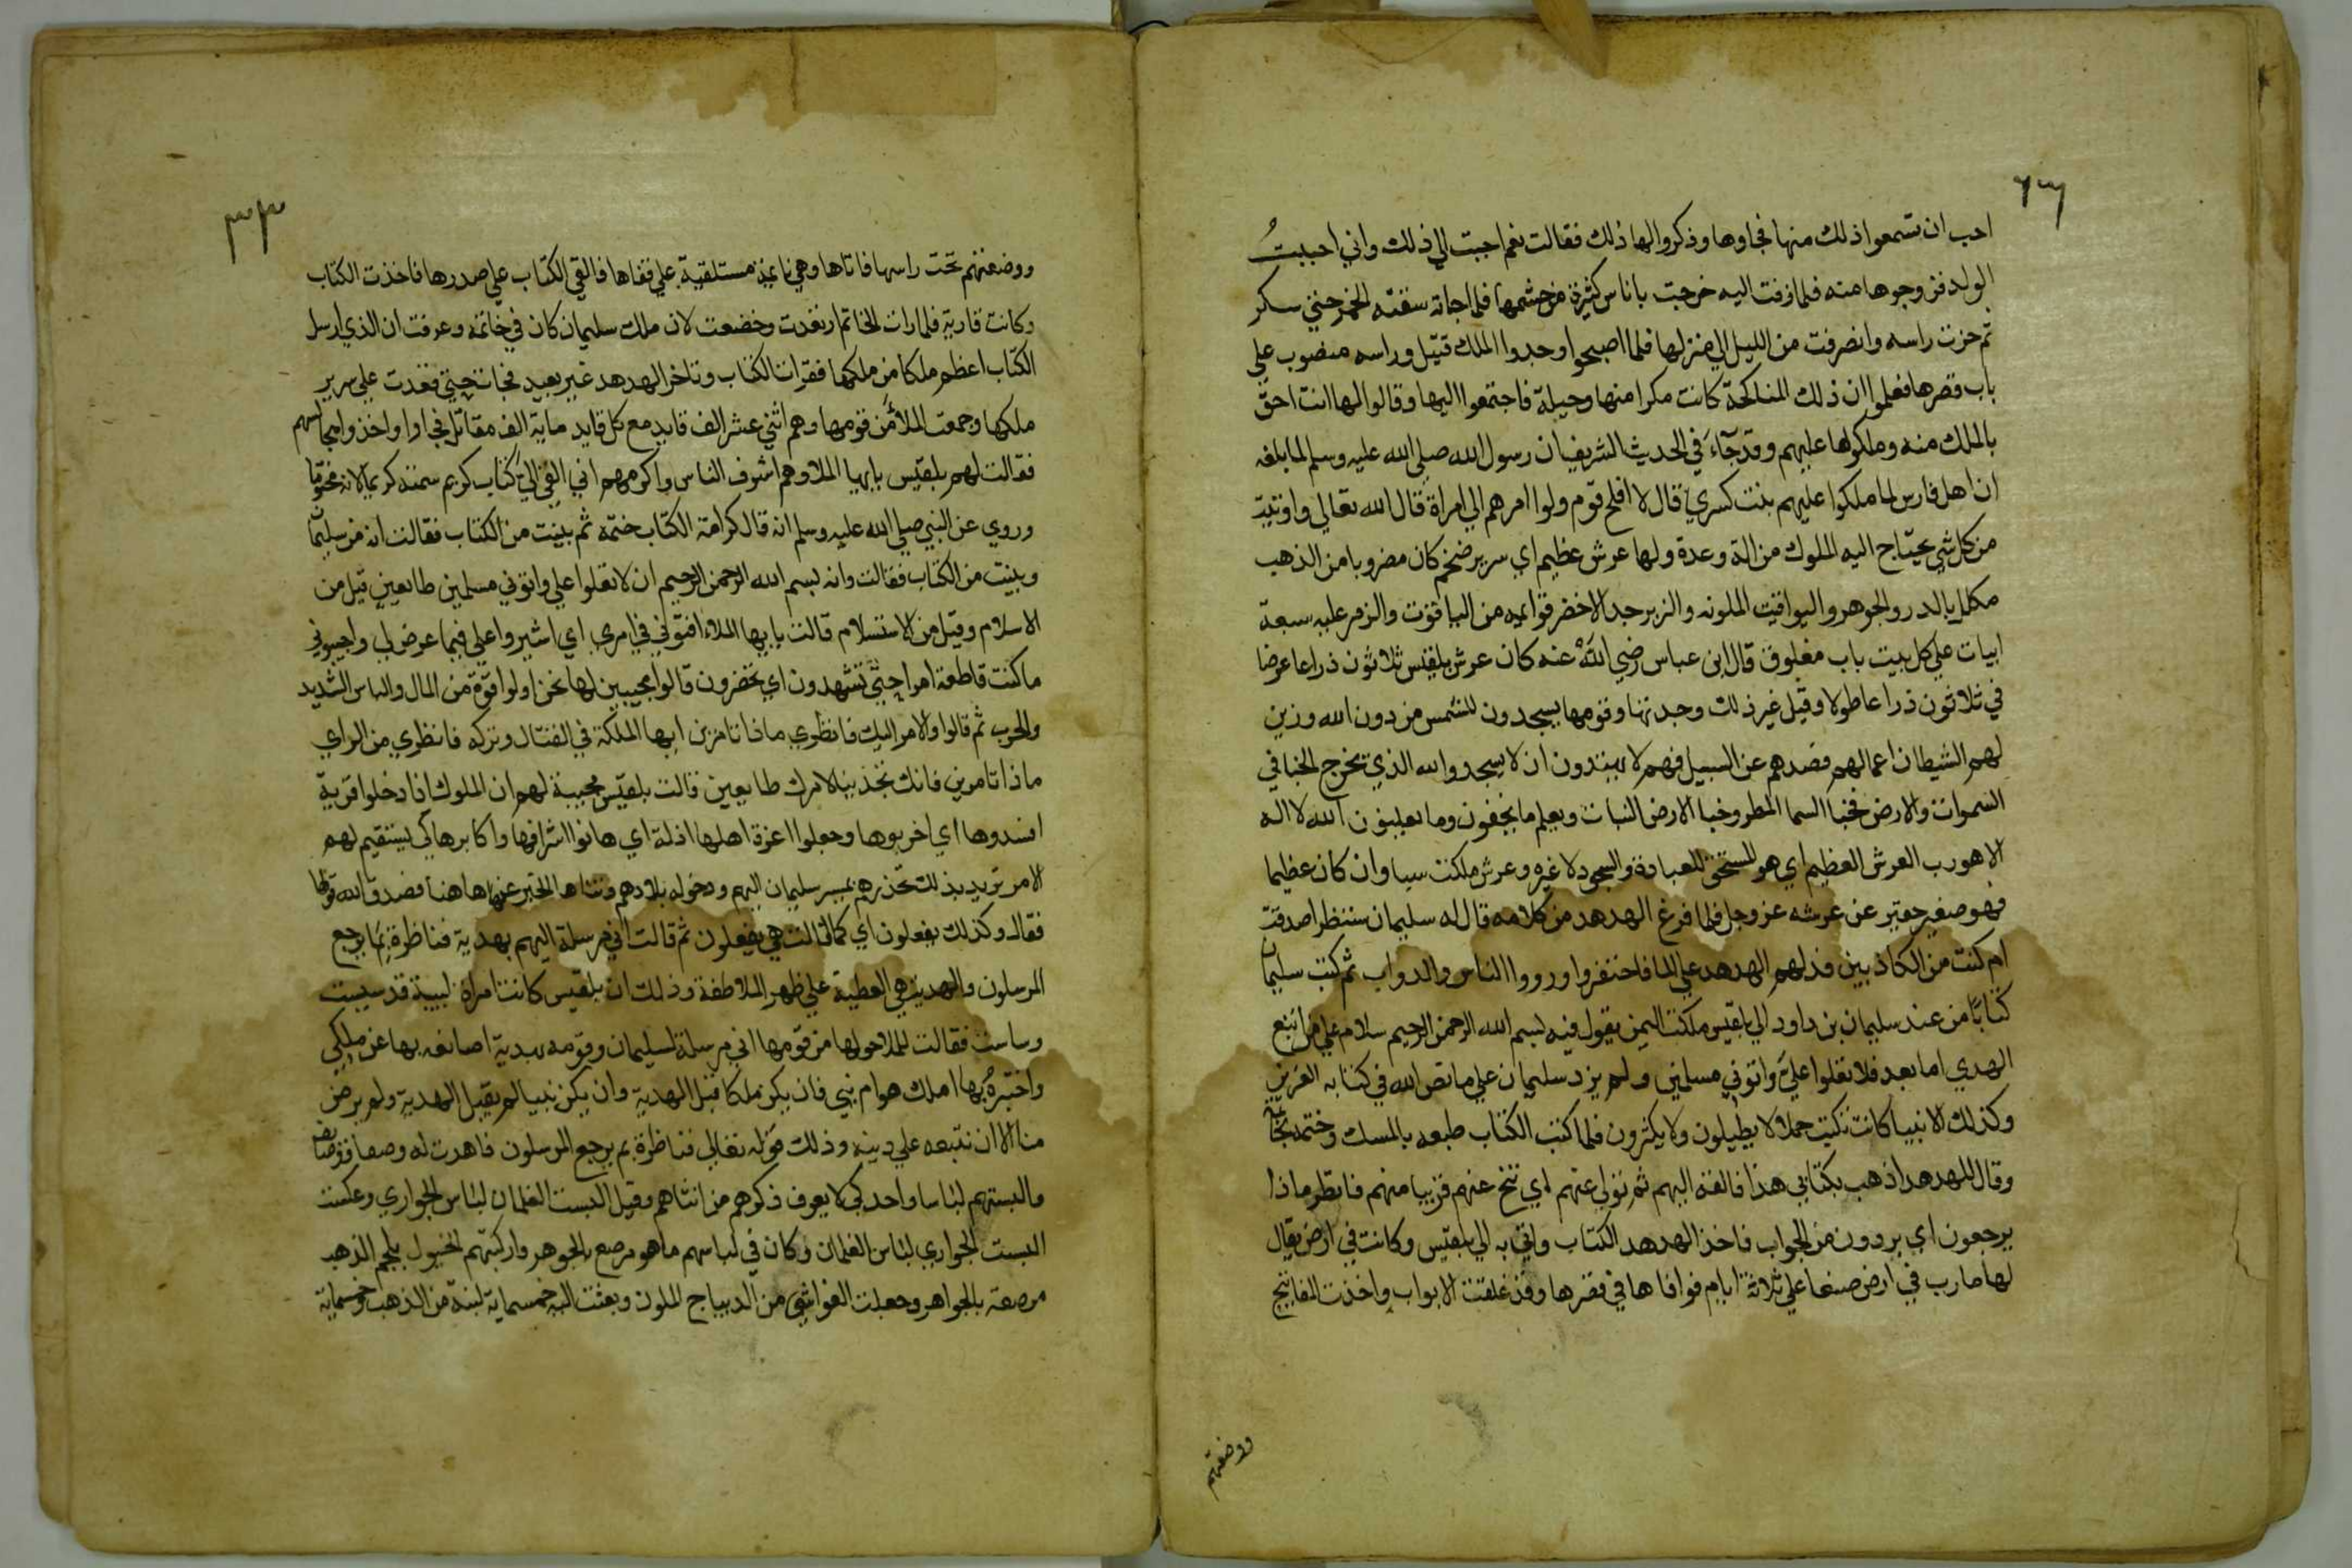 احب ان تسمعوا ذلك منها فجاوها وذكروا لها ذلك فقالت نعم اجبت الي ذلك واني احببت
الولد فزوجوها منه فلما زفت اليه خرجت باناس كثيرة من حشمها فلما جاته سقته الخمر حتي سكر
ثم حزت راسه وانصرفت من الليل الي منزلها فلما اصبحوا وجدوا الملك قتيل وراسه منصوب علي
باب قصرها فعلموا ان ذلك المناكحة كانت مكرا منها وحيلة فاجتمعوا اليها وقالوا لها انت احق
بالملك منه وملكوها عليهم وقد جآء في الحديث الشريف ان رسول الله صلي الله عليه وسلم لما بلغه
ان اهل فارس لما ملكوا عليهم بنت كسري قال لا افلح قوم ولوا امرهم الي امراة قال الله تعالي واوتيت
من كل شي يحتاج اليه الملوك من الة وعدة ولها عرش عظيم اي سرير ضخم كان مضروبا من الذهب
مكلل بالدر والجوهر واليواقيت الملونه والزبرجد الاخضر قوايمه من الياقوت والزمر عليه سبعة
ابيات علي كل بيت باب مغلوق قال ابن عباس رضي الله عنه كان عرش بلقيس ثلاثون ذراعا عرضا
في ثلاثون ذراعا طولا وقيل غير ذلك وجدتها وقومها يسجدون للشمس من دون الله وزين
لهم الشيطان اعمالهم فصدهم عن السبيل فهم لا يهتدون ان لا يسجدوا لله الذي يخرج الخبا في
السموات والارض فخبا السما المطر وخبا الارض النبات ويعلم ما يخفون وما يعلنون الله لا اله
الا هو رب العرش العظيم اي هو المستحق للعبادة والسجود لا غيره وعرش ملكت سبا وان كان عظيما
فهو صغير حقير عن عرشه عز وجل فلما فرغ الهدهد من كلامه قال له سليمان سننظر اصدقت
ام كنت من الكاذبين فدلهم الهدهد علي الما فاحتفروا ورووا الناس والدواب ثم كتب سليمان
كتابا من عند سليمان بن داود الي بلقيس ملكت اليمن يقول فيه بسم الله الرحمن الرحيم سلام علي من اتبع
الهدي اما بعد فلا تعلوا علي واتوني مسلمين ولم يزد سليمان علي ما نص الله في كتابه العزيز
وكذلك الانبيا كانت تكتب جملا لا يطيلون ولا يكثرون فلما كتب الكتاب طبعه بالمسك وختمه بخاتمه
وقال للهدهد اذهب بكتابي هذا فالقه اليهم ثم تولي عنهم اي تنح عنهم قريبا منهم فانظر ماذا
يرجعون اي يردون من الجواب فاخذ الهدهد الكتاب واتي به الي بلقيس وكانت في ارض يقال
لها مارب في ارض صنعا علي ثلاثة ايام فوافاها في قصرها وقد غلقت الابواب واخذت المفاتيح
ووضعتهم
٣٣
ووضعتهم تحت راسها فاتاها وهي نايمة مستلقية علي قفاها فالقي الكتاب علي صدرها فاخذت الكتاب
وكانت قارية فلما رات الخاتم ارتعدت وخضعت لان ملك سليمان كان في خاتمه وعرفت ان الذي ارسل
الكتاب اعظم ملكا من ملكها فقرات الكتاب وتاخر الهدهد غير بعيد فجات حتي قعدت علي سرير
ملكها وجمعت الملأ من قومها وهم اثني عشر الف قايد مع كل قايد ماية الف مقاتل فجاوا واخذوا مجالسهم
فقالت لهم بلقيس يا ايها الملا وهم اشرف الناس واكرمهم اني القي الي كتاب كريم سمته كريم لانه مختوما
وروي عن النبي صلي الله عليه وسلم انه قال كرامة الكتاب ختمه ثم بينت من الكتاب فقالت انه من سليمان
وبينت من الكتاب فقالت وانه بسم الله الرحمن الرحيم ان لا تعلوا علي واتوني مسلمين طايعين قيل من
الاسلام وقيل من الاستسلام قالت يا ايها الملاء افتوني في امري اي اشيروا علي فيما عرض لي واجيبوني
ما كنت قاطعة امرا حتي تشهدون اي تحضرون قالوا مجيبين لها نحن اولوا قوة من المال والباس الشديد
والحرب ثم قالوا والامر اليك فانظري ماذا تامرين ايها الملكة في القتال وتركه فانظري من الراي
ماذا تامرين فانك تجذينا لامرك طايعين قالت بلقيس مجيبة لهم ان الملوك اذا دخلوا قرية
افسدوها اي اخربوها وجعلوا اعزة اهلها اذلة اي هانوا اشرافها واكابرها كي يستقيم لهم
الامر تريد بذلك تحذرهم بمسير سليمان اليهم ودخوله بلادهم وتناها الخبر عنها هاهنا فصدق الله قولها
فقال وكذلك يفعلون اي كما قالت هي يفعلون ثم قالت اني مرسلة اليهم بهدية فناظرة بما يرجع
المرسلون والهدية هي العطية علي ظهر الملاطفة وذلك ان بلقيس كانت امراة لبيبة قد سيست
وساست فقالت للملا حولها من قومها اني مرسلة لسليمان وقومه بهدية اصانعه بها عن ملكي
واختبره بها املك هو ام نبي فان يكن ملكا قبل الهدية وان يكن نبيا لم يقبل الهدية ولم يرض
منا الا ان نتبعه علي دينه وذلك قوله تعالي فناظرة بم يرجع المرسلون فاهدت له وصفا ووصايف
والبستهم لباسا واحد كي لا يعرف ذكرهم من انثاهم وقيل البست الغلمان لباس الجواري وعكست
البست الجواري لباس الغلمان وكان في لباسهم ما هو مرصع بالجوهر واركبتهم الخيول بلجم الذهب
مرصعة بالجواهر وجعلت الغواشي من الديباج الملون وبعثت اليه خمسماية لبنة من الذهب وخمسماية